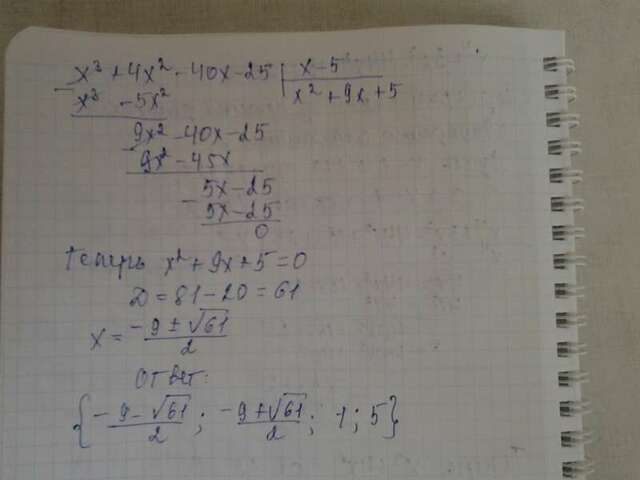 x³ + 4x² - 40x - 25 | x - 5
x³ - 5x² x² + 9x + 5
9x² - 40x - 25
9x² - 45x
5x - 25
5x - 25
0
Теперь x² + 9x + 5 = 0
D = 81 - 20 = 61
x = (-9 ± √61)/2
Ответ:
{(-9 - √61)/2 ; (-9 + √61)/2 ; 1 ; 5}